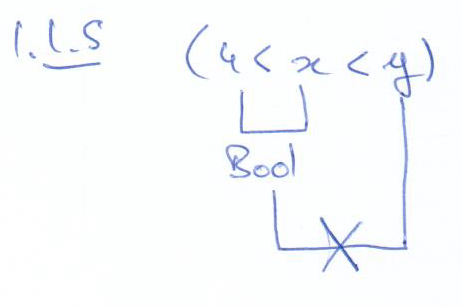 1.1.5 (4 < x < y)
Bool